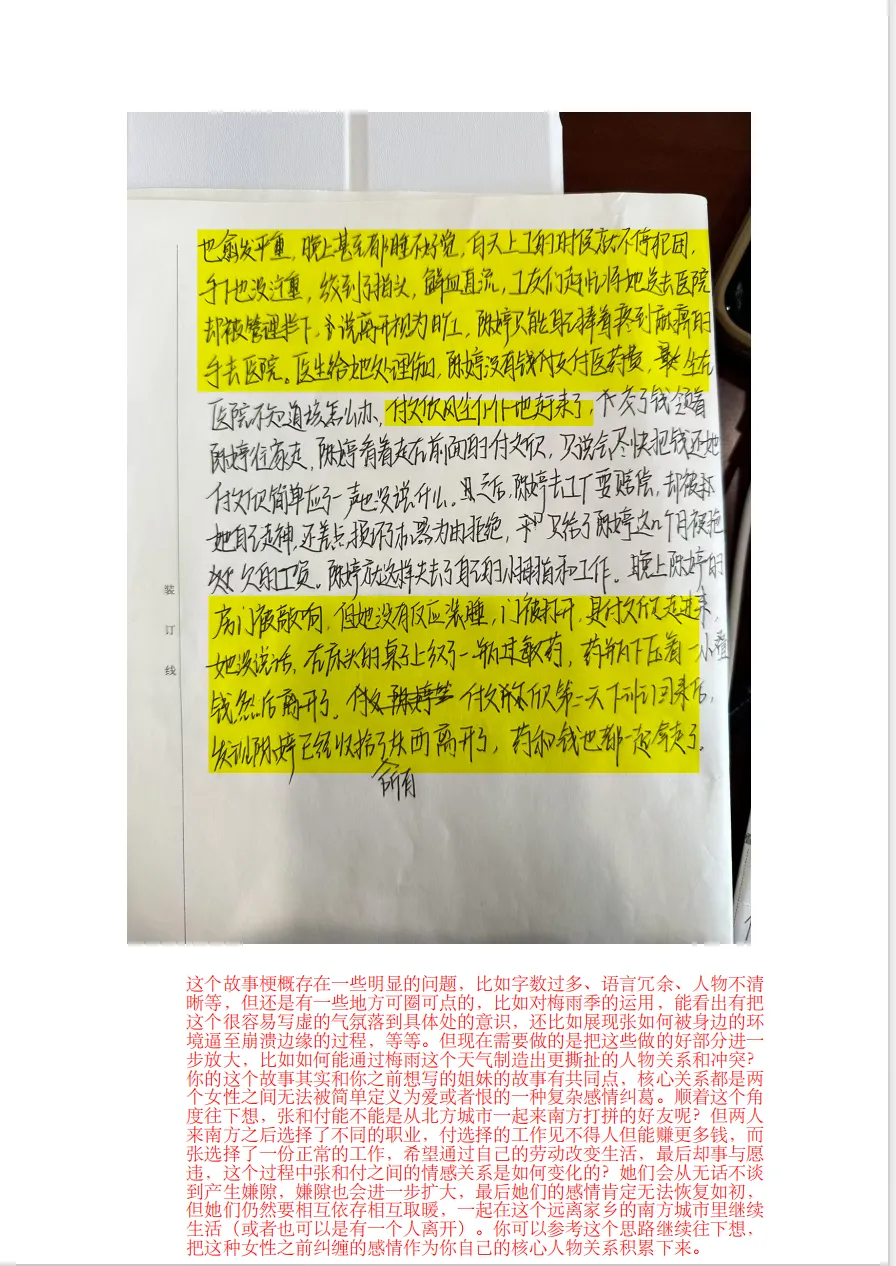 也愈发严重，晚上甚至都睡不好觉，白天上工的时候就不停犯困，
手下也没注重，绞到了指头，鲜血直流，工友们赶忙将她送去医院
却被管理拦下，说离开视为旷工，陈婷只能自己捧着疼到前离的
手去医院。医生给她处理伤口，陈婷没有钱付医药费，坐在
医院不知道该怎么办，付欣欣风尘仆仆地赶来了，交了钱领着
陈婷往家走，陈婷看着走在前面的付欣欣，只说会尽快把钱还她
付欣欣简单应了一声也没说什么。之后，陈婷去工厂要赔偿，却被以
她自己走神，还差点损坏了机器为由拒绝，只给了陈婷这几个月被拖
欠的工资。陈婷就这样失去了自己的小拇指和工作。晚上陈婷的
房门被敲响，但她没有反应装睡，门被打开，是付欣欣走进来，
她没说话，在床头的桌子上放了一瓶过敏药，药瓶下压着一小叠
钱然后离开了。付欣欣第二天下班回来后，
发现陈婷已经收拾了所有东西离开了，药和钱也都一起拿走了。
装
订
线
这个故事梗概存在一些明显的问题，比如字数过多、语言冗余、人物不清
晰等，但还是有一些地方可圈可点的，比如对梅雨季的运用，能看出有把
这个很容易写虚的气氛落到具体处的意识，还比如展现张如何被身边的环
境逼至崩溃边缘的过程，等等。但现在需要做的是把这些做的好部分进一
步放大，比如如何能通过梅雨这个天气制造出更撕扯的人物关系和冲突？
你的这个故事其实和你之前想写的姐妹的故事有共同点，核心关系都是两
个女性之间无法被简单定义为爱或者恨的一种复杂感情纠葛。顺着这个角
度往下想，张和付能不能是从北方城市一起来南方打拼的好友呢？但两人
来南方之后选择了不同的职业，付选择的工作见不得人但能赚更多钱，而
张选择了一份正常的工作，希望通过自己的劳动改变生活，最后却事与愿
违，这个过程中张和付之间的情感关系是如何变化的？她们会从无话不谈
到产生嫌隙，嫌隙也会进一步扩大，最后她们的感情肯定无法恢复如初，
但她们仍然要相互依存相互取暖，一起在这个远离家乡的南方城市里继续
生活（或者也可以是有一个人离开）。你可以参考这个思路继续往下想，
把这种女性之前纠缠的感情作为你自己的核心人物关系积累下来。